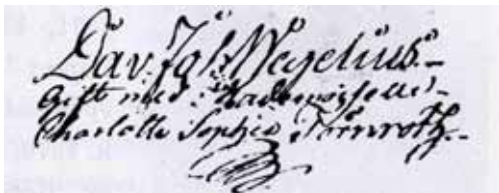 Dav: Joh: Wegelius.
Gift med: Mademoiselle:
Charlotta Sophia Törnroth.